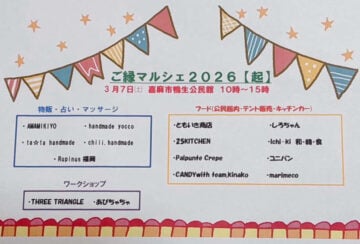 ご縁マルシェ2026【起】
3月7日(土) 嘉麻市鴨生公民館 10時～15時
物販・占い・マッサージ
・AWAMIKIYO ・handmade yocco
・ta*ria handmade ・chili.handmade
・Rupinus 福岡
ワークショップ
・THREE TRIANGLE ・あびちゃちゃ
フード(公民館内・テント販売・キッチンカー)
・ともいき商店 ・しろちゃん
・ZSKITCHEN ・Ichi-ki 和・韓・食
・Palpunte Crepe ・ユニパン
・CANDYwith team,kinako ・marimeco